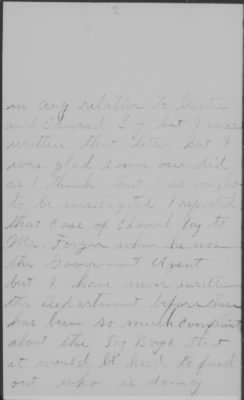 2
in any relative to
and Edward I g but I never
written that letter but I
was glad some one did
as I think that case ought
to be investigated I reported
that case of Edward Ing to
Mr. when he was
the Government Agent
but I have never written
the Department before there
has been so much complaint
about the Boys that
it would be hard to find
out who is doing